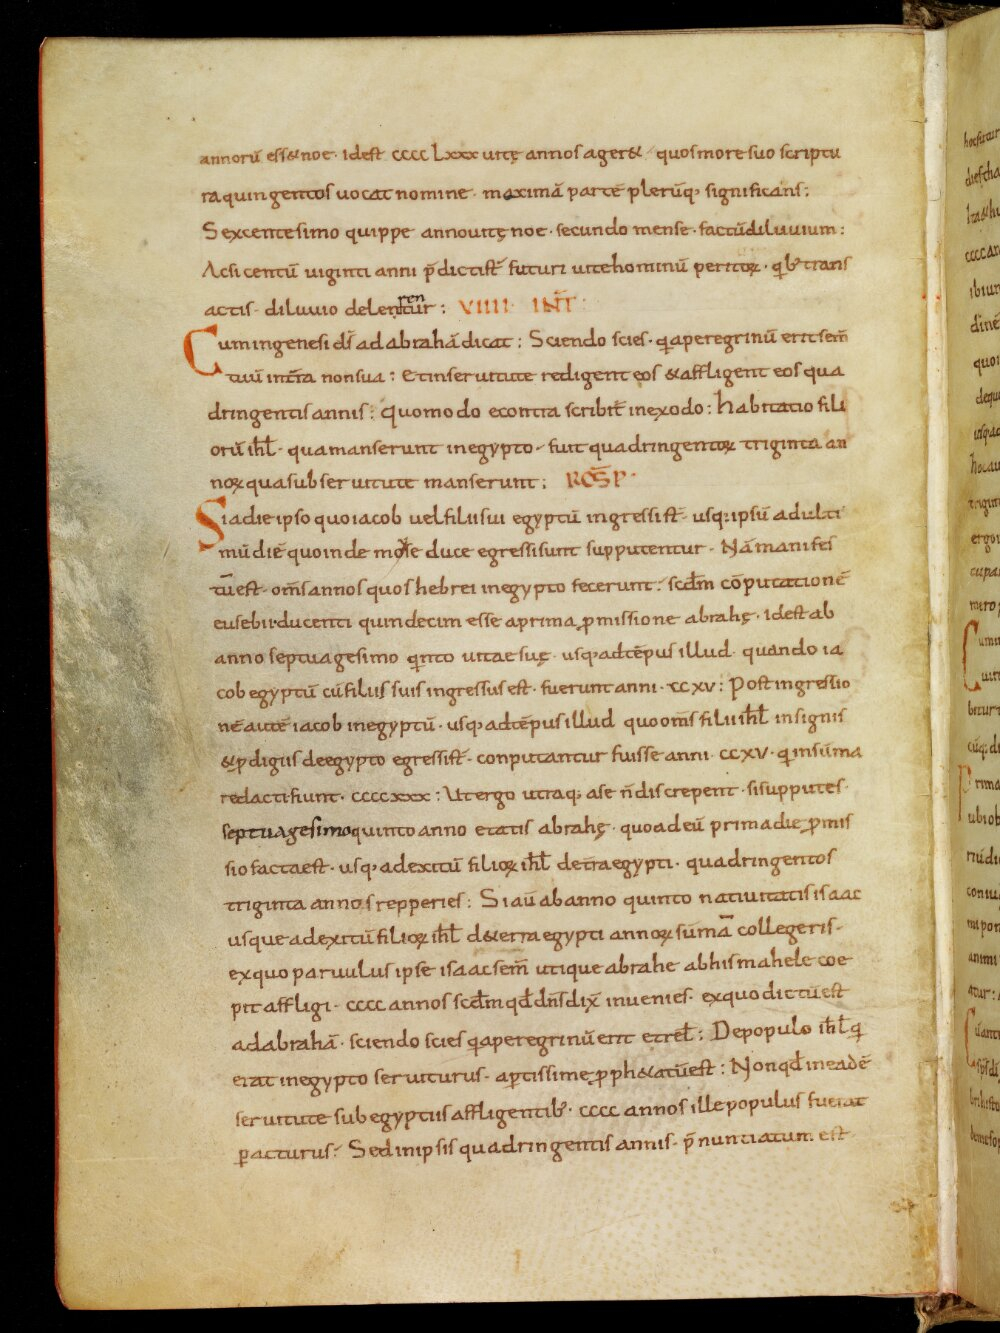 annorū ess&noe · idest cccc lxxx uitę annos ager& · quos more suo scriptu
ra quingentos uocat nomine · maximā partē plerūq; significans;
Sexcentesimo quippe anno uitę noe · secundo mense · factū diluuium:
Acsi centū uiginti anni p̄dicti st̄ futuri uite hominū peritoꝝ · qib; trans
actis · diluuio delerentur : VIIII · INT̄
Cum in genesi ds̄ ad abrahā dicat : Sciendo scies · qa peregrinū erit sem̄
tuū in tr̄a non sua : et in seruitute redigent eos & affligent eos qua
dringentis annis : quomodo econtra scribit̄ in exodo : habitatio fili
orū ihl̄ · qua manserunt in egypto · fuit quadringentoꝝ triginta an
noꝝ qua sub seruitute manserunt ; RŌSP ·
Si a die ipso quo iacob uel filii sui egyptū ingressi st̄ · usq; ipsū ad ulti
mū diē quo inde moyse duce egressi sunt supputentur · Nā manifes
tū est · om̄s annos quos hebrei in egypto fecerunt : scd̄m cōputationē
eusebii ducenti quindecim esse a prima ꝓmissione abrahę · idest ab
anno septuagesimo qinto uitae suę · usq; ad tēpus illud · quando ia
cob egyptū cū filiis suis ingressus est · fuerunt anni · ccxv : Post ingressio
nē autē iacob in egyptū · usq; ad tēpus illud quo om̄s filii ihl̄ in signis
& ꝓdigiis de egypto egressi st̄ · conputantur fuisse anni · ccxv · qi in sūma
redacti fiunt · ccccxxx : Utergo utraq; a se n̄ discrepent · si supputes ·
septuagesimo quinto anno etatis abrahę · quo a deū prima die ꝓmis
sio facta est · usq; ad exitū filioꝝ ihl̄ de tr̄a egypti · quadringentos
triginta annos repperies : Si aū ab anno quinto natiuitatis isaac
usque ad exitū filioꝝ ihl̄ d& erra egypti annoꝝ sūmā collegeris ·
ex quo paruulus ipse isaac sem̄ utique abrahe ab hismahele coe
pit affligi · cccc annos scd̄m qd̄ dn̄s dix̄ inuenies · ex quo dictū est
ad abrahā · sciendo scies qa peregrinū erit et rel̄ : De populo ihl̄ qi
erat in egypto seruiturus · aptissime ꝓph&atū est : Non qd̄ in eadē
seruitute sub egyptiis affligentib; · cccc annos ille populus fuerat
ꝑacturus : Sed in ipsis quadringentis annis · p̄nuntiatum est